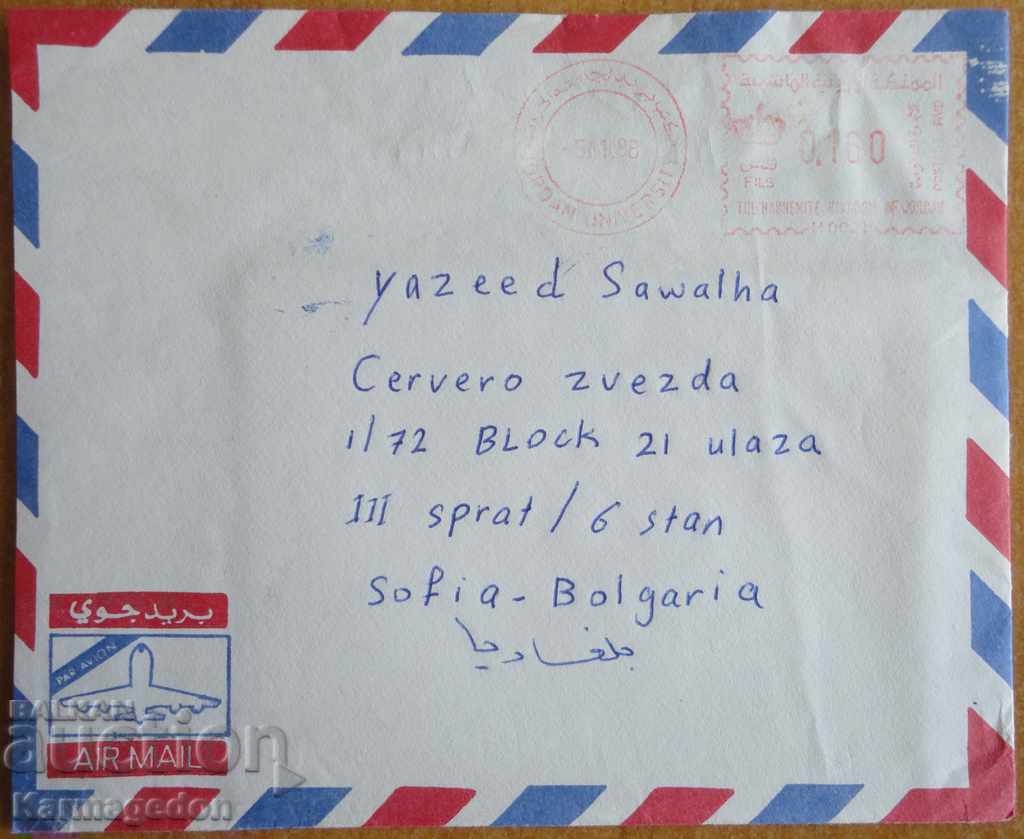 المملكة الأردنية الهاشمية
0.160
FILS
THE HASHEMITE KINGDOM OF JORDAN
JORDAN UNIVERSITY
yazeed Sawalha
Cervero zvezda
1/72 BLOCK 21 ulaza
III sprat / 6 stan
Sofia - Bolgaria
بلغاريا
بريد جوي
PAR AVION
AIR MAIL
BALKAN
auction
Karmagedon